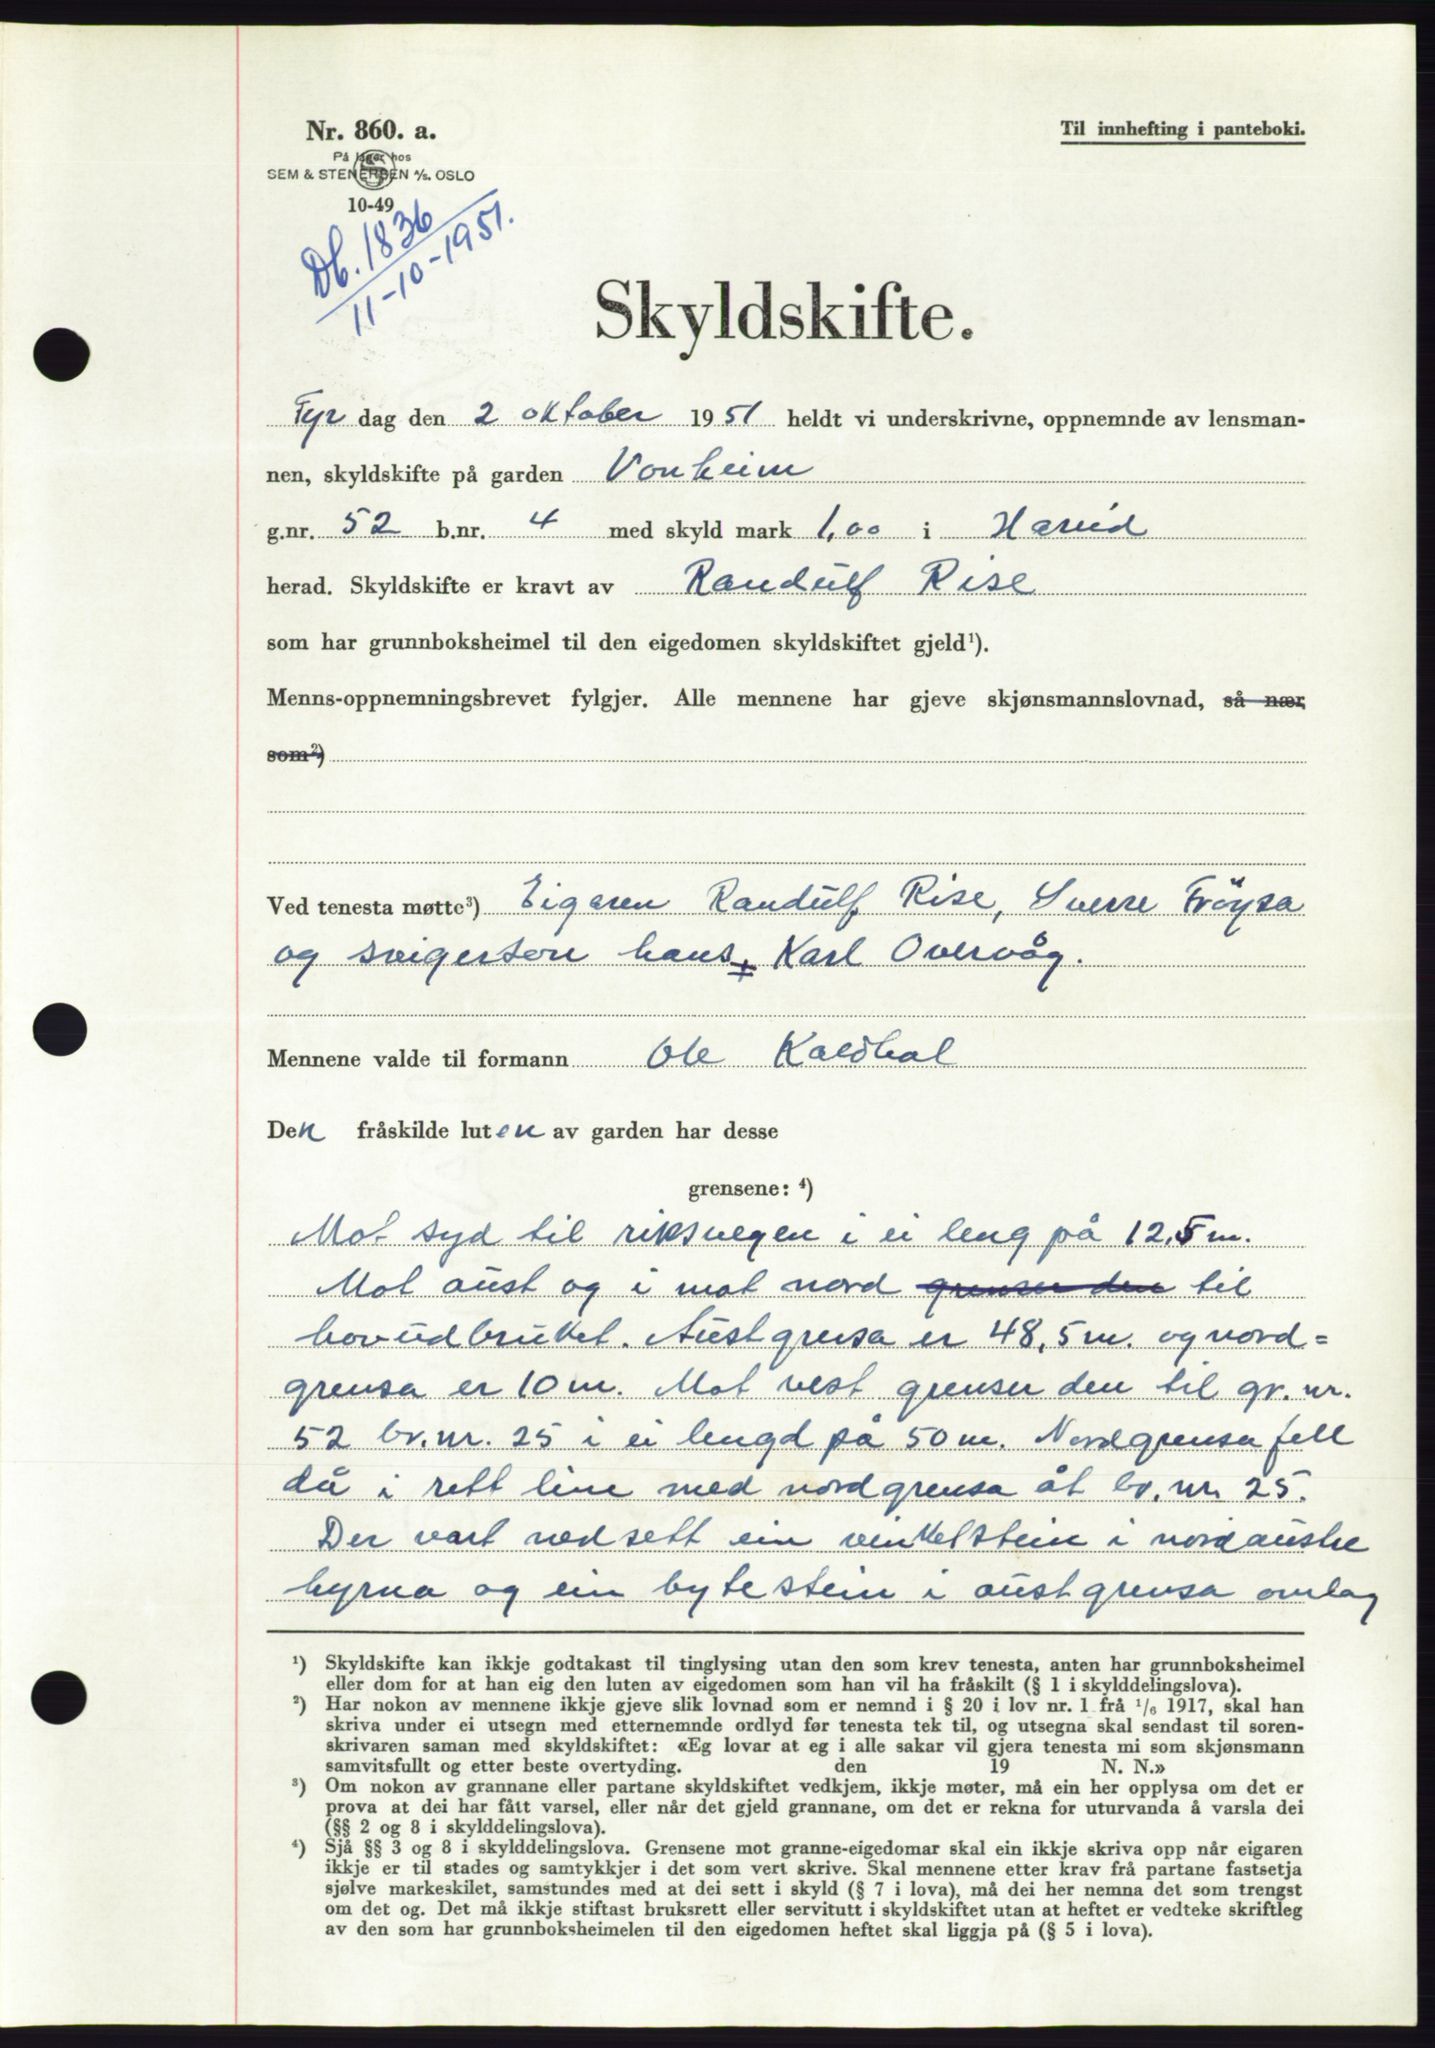 Nr. 860. a.
Til innhefting i panteboki.
På lager hos
SEM & STENERSEN A/S. OSLO
10-49
Db. 1836
11-10-1951.
Skyldskifte.
Tyr dag den 2 oktober 1951 heldt vi underskrivne, oppnemnde av lensman-
nen, skyldskifte på garden Vonheim
g.nr. 52 b.nr. 4 med skyld mark 1,00 i Hareid
herad. Skyldskifte er kravt av Randulf Rise
som har grunnboksheimel til den eigedomen skyldskiftet gjeld¹).
Menns-oppnemningsbrevet fylgjer. Alle mennene har gjeve skjønsmannslovnad, så nær
som²)
Ved tenesta møtte³) Eigaren Randulf Rise, Sverre Fröysa
og svigerson hans, Karl Overvåg.
Mennene valde til formann Ole Kaldhol
Den fråskilde luten av garden har desse
grensene: ⁴)
Mot syd til riksvegen i ei leng på 12,5 m.
Mot aust og i mot nord grenser den til
hovudbruket. Austgrensa er 48,5 m. og nord=
grensa er 10 m. Mot vest grenser den til gr. nr.
52 br. nr. 25 i ei lengd på 50 m. Nordgrensa fell
då i rett line med nordgrensa åt br. nr. 25.
Der vart nedsett ein vinkelstein i nordaustre
hyrna og ein bytestein i austgrensa omlag
¹) Skyldskifte kan ikkje godtakast til tinglysing utan den som krev tenesta, anten har grunnboksheimel
eller dom for at han eig den luten av eigedomen som han vil ha fråskilt (§ 1 i skylddelingslova).
²) Har nokon av mennene ikkje gjeve slik lovnad som er nemnd i § 20 i lov nr. 1 frå ¹/₆ 1917, skal han
skriva under ei utsegn med etternemnde ordlyd før tenesta tek til, og utsegna skal sendast til soren-
skrivaren saman med skyldskiftet: «Eg lovar at eg i alle sakar vil gjera tenesta mi som skjønsmann
samvitsfullt og etter beste overtyding. den 19 N. N.»
³) Om nokon av grannane eller partane skyldskiftet vedkjem, ikkje møter, må ein her opplysa om det er
prova at dei har fått varsel, eller når det gjeld grannane, om det er rekna for uturvanda å varsla dei
(§§ 2 og 8 i skylddelingslova).
⁴) Sjå §§ 3 og 8 i skylddelingslova. Grensene mot granne-eigedomar skal ein ikkje skriva opp når eigaren
ikkje er til stades og samtykkjer i det som vert skrive. Skal mennene etter krav frå partane fastsetja
sjølve markeskilet, samstundes med at dei sett i skyld (§ 7 i lova), må dei her nemna det som trengst
om det og. Det må ikkje stiftast bruksrett eller servitutt i skyldskiftet utan at heftet er vedteke skriftleg
av den som har grunnboksheimelen til den eigedomen heftet skal liggja på (§ 5 i lova).